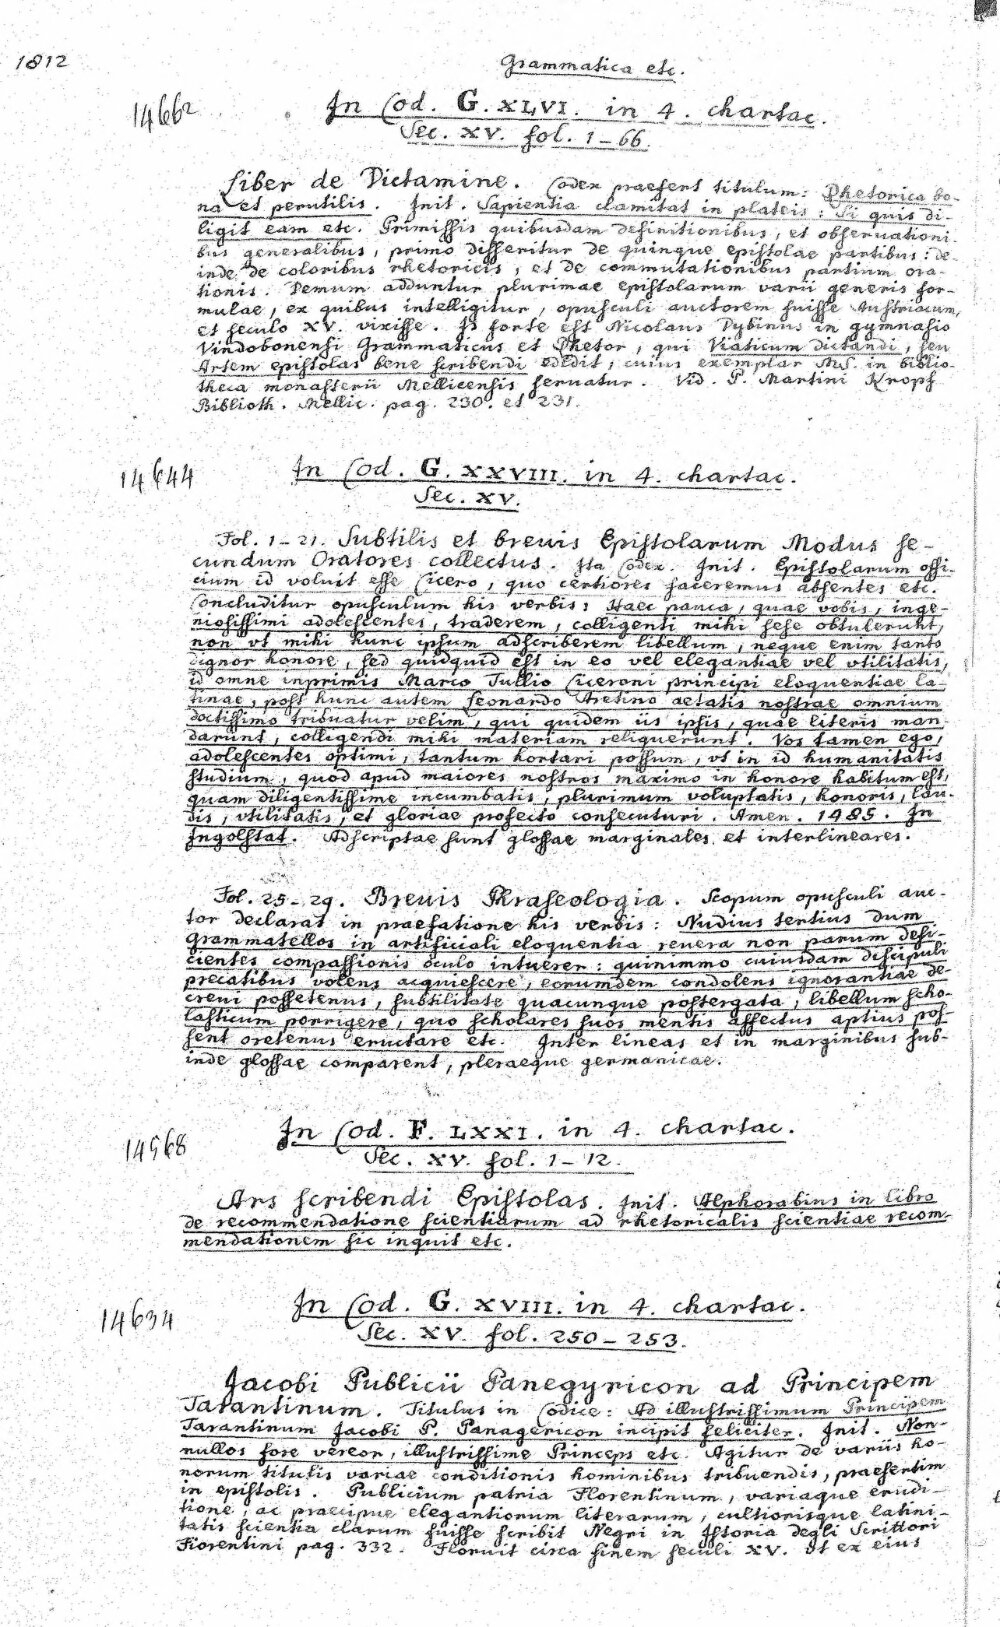 1812
Grammatica etc.
14662
In Cod. G. XLVI. in 4. chartac.
Sec. XV. fol. 1-66.
Liber de Dictamine. Codex praefert titulum: Rhetorica bo-
na et perutilis. Init. Sapientia clamitat in plateis: Si quis di-
ligit eam etc. Primissis quibusdam definitionibus, et obseruationi-
bus generalibus, primo disseritur de quinque epistolae partibus: de-
inde de coloribus rhetoricis, et de commutationibus partium ora-
tionis. Demum adduntur plurimae epistolarum varii generis for-
mulae, ex quibus intelligitur, opusculi auctorem fuisse Austriacum,
et seculo XV. vixisse. Is forte est Nicolaus Dybinus in gymnasio
Vindobonensi Grammaticus et Rhetor, qui Viaticum dictandi, seu
Artem epistolas bene scribendi edidit, cuius exemplar MS. in biblio-
theca monasterii Mellicensis seruatur. Vid. P. Martini Kropf
Biblioth. Mellic. pag. 230. et 231.
14644
In Cod. G. XXVIII. in 4. chartac.
Sec. XV.
Fol. 1-21. Subtilis et breuis Epistolarum Modus se-
cundum Oratores collectus. Ita Codex. Init. Epistolarum offi-
cium id voluit esse Cicero, quo certiores faceremus absentes etc.
Concluditur opusculum his verbis: Haec pauca, quae vobis, inge-
niosissimi adolescentes, traderem, colligenti mihi sese obtulerunt,
non vt mihi hunc ipsum adscriberem libellum, neque enim tanto
dignor honore, sed quidquid est in eo vel elegantiae vel vtilitatis,
id omne inprimis Marco Tullio Ciceroni principi eloquentiae la-
tinae, post hunc autem Leonardo Aretino aetatis nostrae omnium
doctissimo tribuatur velim, qui quidem iis ipsis, quae literis man-
darunt, colligendi mihi materiam reliquerunt. Vos tamen ego,
adolescentes optimi, tantum hortari possum, vt in id humanitatis
studium, quod apud maiores nostros maximo in honore habitum est,
quam diligentissime incumbatis, plurimum voluptatis, honoris, lau-
dis, vtilitatis, et gloriae profecto consecuturi. Amen. 1485. In
Ingolstat. Adscriptae sunt glossae marginales et interlineares.
Fol. 25-29. Breuis Phraseologia. Scopum opusculi auc-
tor declarat in praefatione his verbis: Nudius tertius dum
grammatellos in artificiali eloquentia reuera non parum defi-
cientes compassionis oculo intuerer: quinimmo cuiusdam discipuli
precatibus volens acquiescere, eorumdem condolens ignorantiae de-
creui possetenus, subtilitate quacunque postergata, libellum scho-
lasticum porrigere, quo scholares suos mentis affectus aptius pos-
sent oretenus eructare etc. Inter lineas et in marginibus sub-
inde glossae comparent, pleraeque germanicae.
14568
In Cod. F. LXXI. in 4. chartac.
Sec. XV. fol. 1-12.
Ars scribendi Epistolas. Init. Alphorabius in libro
de recommendatione scientiarum ad rhetoricalis scientiae recom-
mendationem sic inquit etc.
14634
In Cod. G. XVIII. in 4. chartac.
Sec. XV. fol. 250-253.
Jacobi Publicii Panegyricon ad Principem
Tarantinum. Titulus in Codice: Ad illustrissimum Principem
Tarantinum Jacobi P. Panagericon incipit feliciter. Init. Non-
nullos fore vereor, illustrissime Princeps etc. Agitur de variis ho-
norum titulis variae conditionis hominibus tribuendis, praesertim
in epistolis. Publicium patria Florentinum, variaque erudi-
tione, ac praecipue elegantiorum literarum, cultiorisque latini-
tatis scientia clarum fuisse scribit Negri in Istoria degli Scrittori
Fiorentini pag. 332. Floruit circa finem seculi XV. Vt ex eius